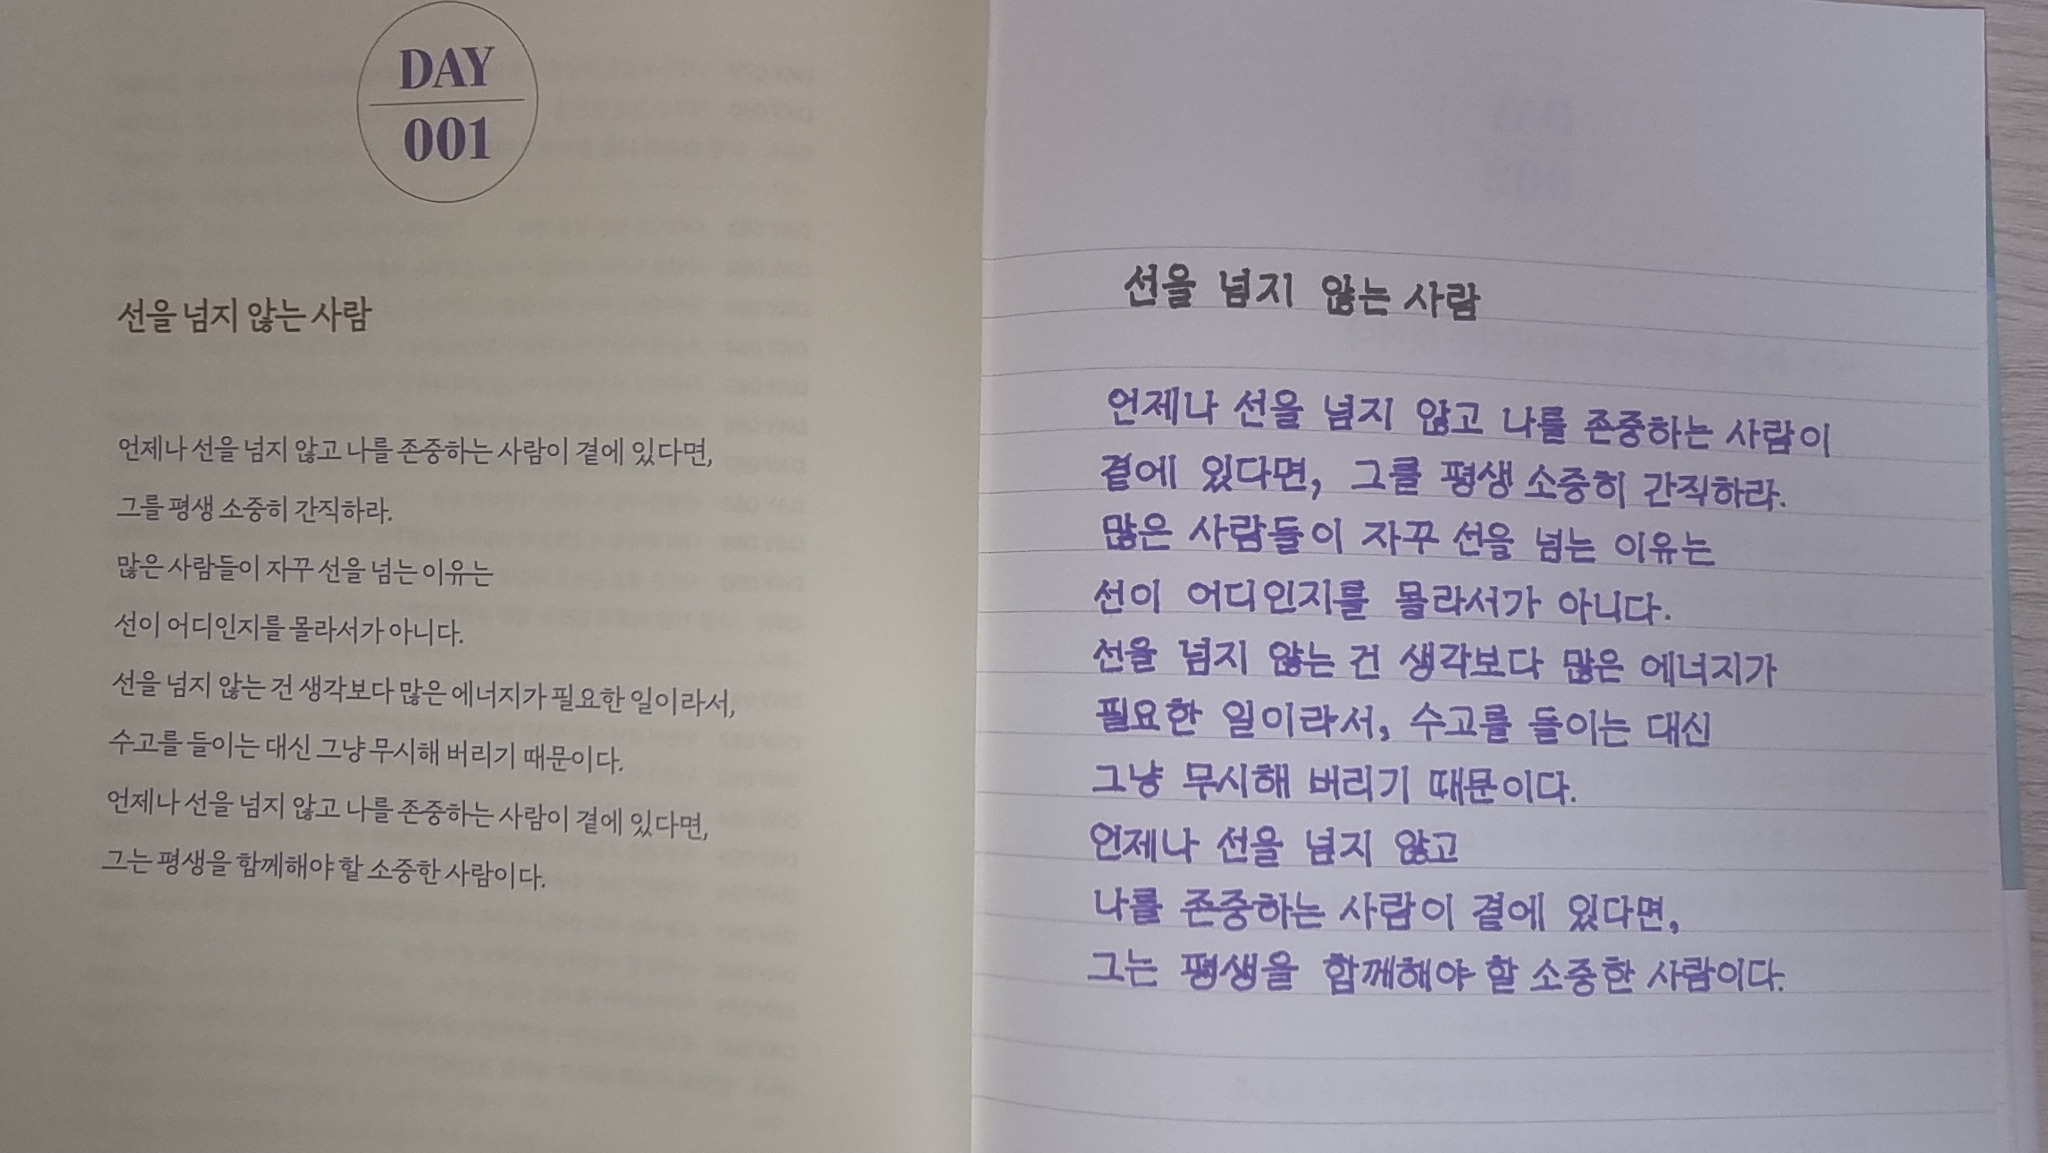 DAY
001
선을 넘지 않는 사람
언제나 선을 넘지 않고 나를 존중하는 사람이 곁에 있다면,
그를 평생 소중히 간직하라.
많은 사람들이 자꾸 선을 넘는 이유는
선이 어디인지를 몰라서가 아니다.
선을 넘지 않는 건 생각보다 많은 에너지가 필요한 일이라서,
수고를 들이는 대신 그냥 무시해 버리기 때문이다.
언제나 선을 넘지 않고 나를 존중하는 사람이 곁에 있다면,
그는 평생을 함께해야 할 소중한 사람이다.
선을 넘지 않는 사람
언제나 선을 넘지 않고 나를 존중하는 사람이
곁에 있다면, 그를 평생 소중히 간직하라.
많은 사람들이 자꾸 선을 넘는 이유는
선이 어디인지를 몰라서가 아니다.
선을 넘지 않는 건 생각보다 많은 에너지가
필요한 일이라서, 수고를 들이는 대신
그냥 무시해 버리기 때문이다.
언제나 선을 넘지 않고
나를 존중하는 사람이 곁에 있다면,
그는 평생을 함께해야 할 소중한 사람이다.